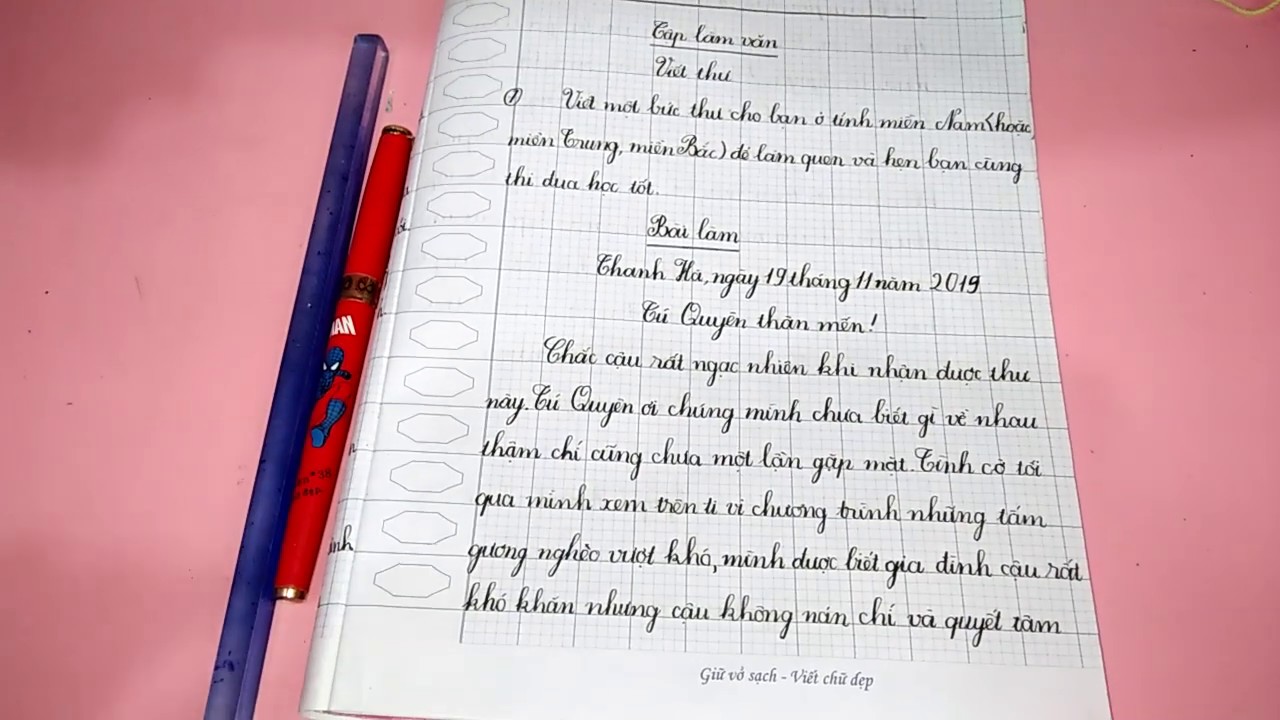 Tập làm văn
Viết thư
① Viết một bức thư cho bạn ở tỉnh miền Nam (hoặc
miền Trung, miền Bắc) để làm quen và hẹn bạn cùng
thi đua học tốt.
Bài làm
Thanh Hà, ngày 19 tháng 11 năm 2019
Tú Quyên thân mến!
Chắc cậu rất ngạc nhiên khi nhận được thư
này. Tú Quyên ơi chúng mình chưa biết gì về nhau
thậm chí cũng chưa một lần gặp mặt. Tình cờ tối
qua mình xem trên ti vi chương trình những tấm
gương nghèo vượt khó, mình được biết gia đình cậu rất
khó khăn nhưng cậu không nản chí và quyết tâm
Giữ vở sạch - Viết chữ đẹp